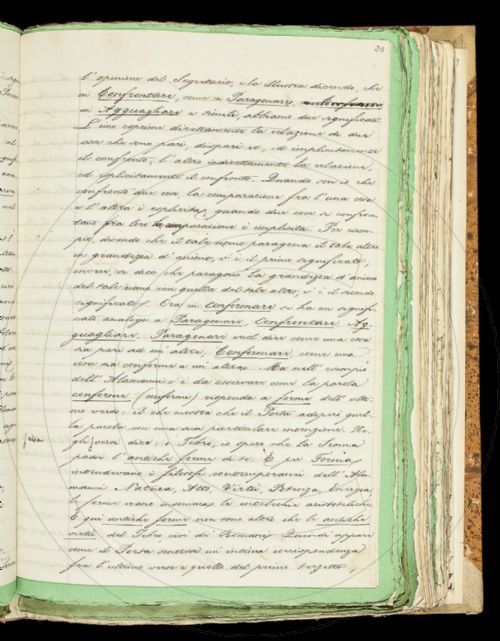 l'opinione del Segretario, e la illustra dicendo, che
in Confrontare, come in Paragonare,
in Agguagliare e simili, abbiamo due significati.
L'uno esprime direttamente la relazione di due
cose che sono pari, dispari ec, ed implicitamente
il confronto, l'altro indirettamente la relazione,
ed esplicitamente il confronto. Quando son io che
confronto due cose, la comparazione fra l'una cosa
e l'altra è esplicita; quando due cose si confron-
tano fra loro la comparazione è implicita. Per esem-
pio, dicendo che il tale uomo paragona il tale altro
in grandezza d'animo, v'è il primo significato,
invece, se dico che paragono la grandezza d'animo
del tale uomo con quella del tale altro, v'è il secondo
significato. Ora in Confermare si ha un signifi-
cato analogo a Paragonare, Confrontare, Ag-
guagliare. Paragonare vuol dire come una cosa
sia pari ad un'altra, Confermare come una
cosa sia conforme a un'altra. Ma nell'esempio
dell'Alamanni v'è da osservare come la parola
conferma (conforma) risponda a forme dell'
verso: il che mostra che il Poeta adoprò quel-
la parola con una sua particolare menzione. E-
gli vera dice: o Tebro, io spero che la Senna
pari l'antiche forme di te. E per Forma,
intendevano i filosofi contemporanei dell'Ala-
manni Natura, Atto, Virtù, Potenza, Energia,
le forme erano insomma le entelechie aristoteliche.
E qui antiche forme non sono altro che le antiche
virtù del Tebro, cioè di Romani. Quindi appare
come il Poeta sentisse un'intima corrispondenza
fra l'ultimo verso e quello del primo terzetto.